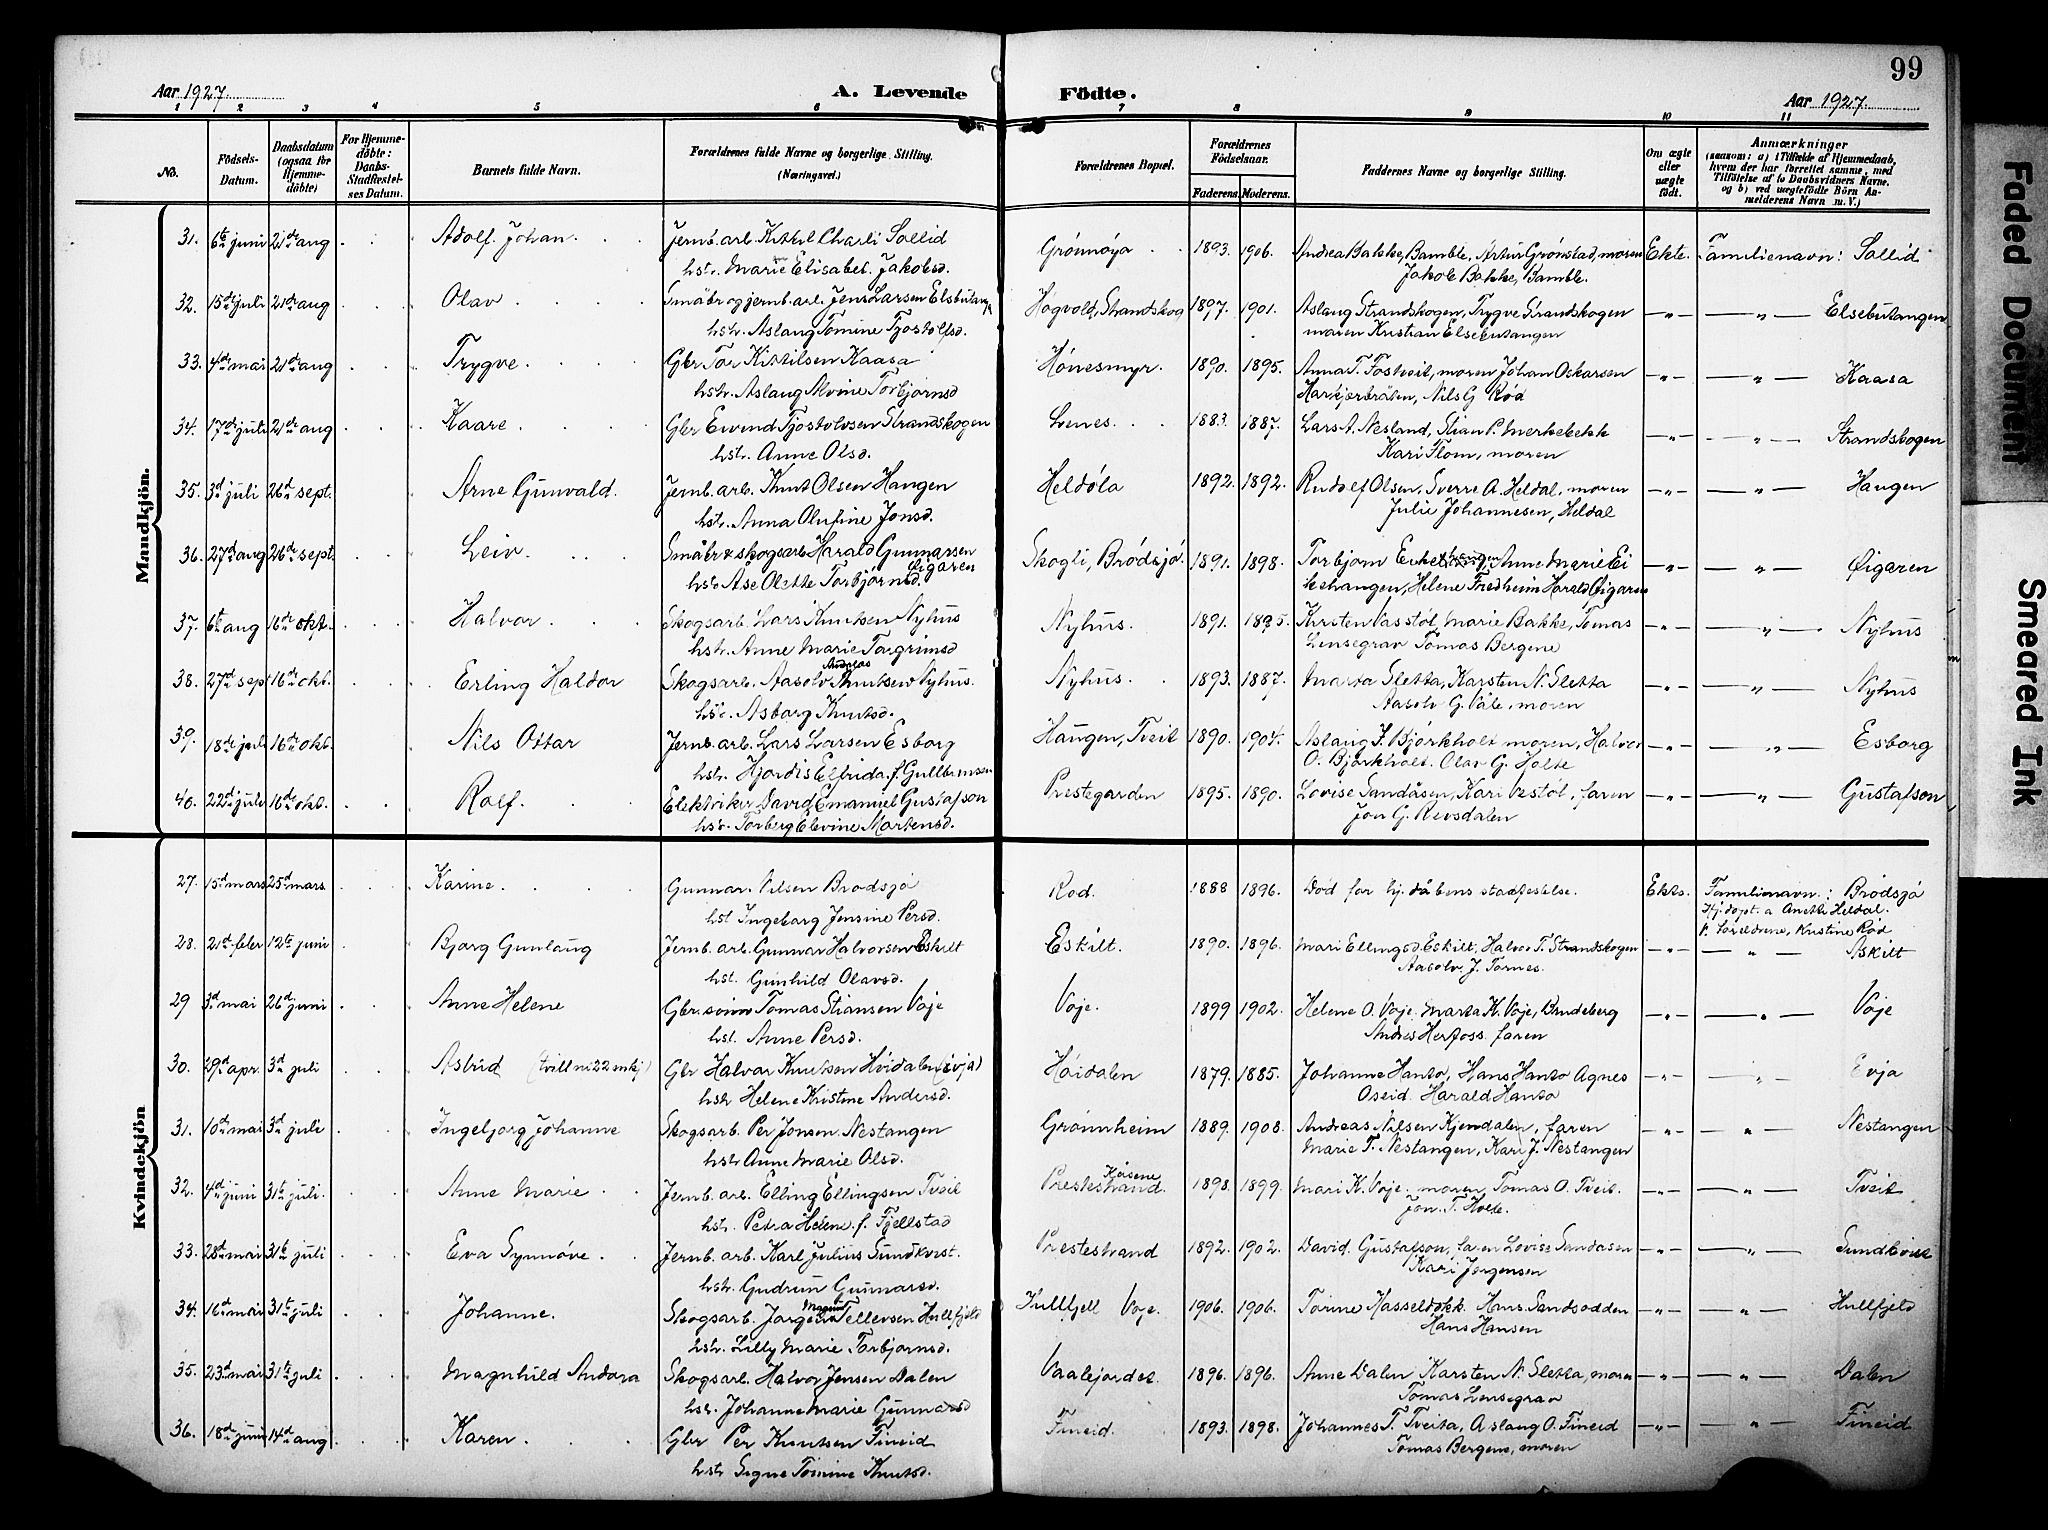 99
Aar 1927. A. Levende Födte. Aar 1927.
1 2 3 4 5 6 7 8 9 10 11
No. Födsels-Datum. Daabsdatum (ogsaa for Hjemmedöbte) For Hjemmedöbte: Daabs-Stadfæstelses Datum. Barnets fulde Navn. Forældrenes fulde Navne og borgerlige Stilling. (Næringsvei.) Forældrenes Bopæl. Forældrenes Födselsaar. Faderens. Moderens. Faddernes Navne og borgerlige Stilling. Om ægte eller uægte födt. Anmærkninger (saasom: a) i Tilfælde af Hjemmedaab, hvem der har forrettet samme, med Tilföielse af to Daabsvidners Navne, og b) ved uægtefödte Börn Anmelderens Navn m. V.)
Mandkjön.
31. 6te juni 21de aug Adolf Johan Jernb.arb. Kittil Charli Sollid Grønnøya 1893. 1906. Andrea Bakke, Bamble, Artur Grønstad, moren Ekte. Familienavn: Sollid
hstr. Marie Elisabet Jakobsd. Jakob Bakke, Bamble.
32. 15de juli 21de aug Olav Småbr og jernb.arb. Jens Larsen Elsbutangen Høgvold, Strandskog 1897. 1901. Aslaug Strandskogen, Trygve Strandskogen —"— —"— Elsebutangen
hstr. Aslaug Tomine Tjostolfsd. moren Kristian Elsebutangen
33. 4de mai 21de aug Trygve Gbr Tor Kittilsen Kaasa Hönesmyr. 1890. 1895. Anna T. Fostveit, moren Johan Oskarsen —"— —"— Kaasa
hstr. Aslaug Alvine Torbjørnsd Nils G Rød
34. 17de juli 21de aug Kaare Gbr Eivind Tjostolvsen Strandskogen Lenes. 1883. 1887. Lars A. Nesland, Stian P. Merkebekk —"— —"— Strandskogen
hstr. Anne Olsd. Kari Flom, moren
35. 3de juli 26de sept. Arne Gunvald. Jernb.arb. Knut Olsen Haugen Heldøla 1892. 1892. Rudolf Olsen, Sverre A. Heldal, moren —"— —"— Haugen
hstr. Anna Olufine Jonsd. Julie Johannesen, Heldal
36. 27de aug 26de sept. Leiv Småbr & skogsarb Harald Gunnarsen Øigaren Skogli, Brødsjø. 1891. 1898. Torbjørn Eikehaugen, Anne Marie Ei —"— —"— Øigaren
hstr Åse Olette Torbjørnsd. kehaugen, Helene Fredheim Harald Øigaren
37. 6te aug 16de okt. Halvor Skogsarb. Lars Knutsen Nyhus Nyhus. 1891. 1895. Kirsten Vasstøl, Marie Bakke, Tomas —"— —"— Nyhus
hstr. Anne Marie Torgrimsd Lensegrav Tomas Bergene
38. 27de sept 16de okt. Erling Haldor Skogsarb. Aasolv Andreas Knutsen Nyhus. Nyhus. 1893. 1887. Marta Sletta, Karsten N. Sletta —"— —"— Nyhus
hstr. Asborg Knutsd. Aasolv G. Våle, moren
39. 18de juli 16de okt. Nils Ottar Jernb.arb. Lars Larsen Esborg Haugen, Tveit 1890. 1904. Aslaug J. Bjørkholt moren, Halvor —"— —"— Esborg
hstr. Hjørdis Elfrida f. Gullbrensen O. Bjørkholt. Olav G. Holte
40. 22de juli 16de okt. Rolf. Elektriker David Emanuel Gustafson Prestegarden 1895. 1890. Lovise Sandåsen, Kari Vestøl, faren —"— —"— Gustafson
hstr. Torberg Elevine Martensd. Jon G. Revsdalen
Kvindekjön
27. 15de mars 25de mars Karine Gunnar Nilsen Brødsjø Rød. 1888 1896. Død for hj.dåbens stadfestelse. Ekte. Familienavn: Brødsjø
hst Ingeborg Jensine Persd. Hj.døpt. a Anethe Heldal.
Kristine Rød
28. 21de febr 12te juni Bjørg Gunlaug Jernb.arb. Gunnar Halvorsen Eskilt Eskilt. 1890. 1896. Mari Ellingsd Eskilt, Halvor T. Strandskogen —"— —"— Eskilt
hst. Gunhild Olavsd. Aasolv J. Tornes.
29 3de mai 26de juni Anne Helene Gbr.sønn Tomas Stiansen Voje Voje. 1899 1902. Helene O. Voje. Marta K. Voje, Brudeberg —"— —"— Voje
hst. Anne Persd. Andres Herfoss. faren
30. 29de apr. 3de juli Astrid (tvill m 22 mkj) Gbr Halvor Knutsen Høidalen (Evja) Høidalen 1879. 1885. Johanne Hanto, Hans Hanto Agnes —"— —"— Evja
hstr Helene Kristine Andersd. Oseid. Harald Hanto
31. 10de mai 3de juli Ingebjørg Johanne Skogsarb. Per Jonsen Nestangen Grønnheim 1889. 1908. Andreas Nilsen Kjendalen, faren —"— —"— Nestangen
hstr Anne Marie Olsd. Marie T. Nestangen, Kari J. Nestangen
32. 4de juni 31te juli. Anne Marie Jernb.arb. Elling Ellingsen Tveit Prestestrand. 1898. 1899. Mari K. Voje. moren, Tomas O. Tveit. —"— —"— Tveit
hstr. Petra Helene f. Fjellstad Jon. T. Holte.
33. 28de mai 31te juli Eva Synnøve Jernb.arb. Karl Julius Sundkvist. Prestestrand 1892. 1902. David. Gustafson, faren Lovise Sandåsen —"— —"— Sundkvist
hstr. Gudrun Gunnarsd. Kari Jørgensen
34. 16de mai 31te juli Johanne. Skogsarb. Jørgen Magnus Tellevsen Hullfjeld Hullfjell Voje. 1906. 1906. Torine Hasseldokk Hans Sandsodden —"— —"— Hullfjeld
hstr. Lilly Marie Torbjørnsd. Hans Hansen
35. 23de mai 31te juli Magnhild Andora Skogsarb. Halvor Jensen Dalen Vaalejordet. 1896. 1896. Anne Dalen Karsten N. Sletta, moren —"— —"— Dalen
hstr. Johanne Marie Gunnarsd Tomas Lensegrav
36. 18de juni 14de aug Karen Gbr Per Knutsen Fineid Fineid. 1893. 1898. Johannes T. Tveita, Aslaug O. Fineid —"— —"— Fineid
hstr Signe Tomine Knutsd. Tomas Bergene, moren
Faded Document
Smeared Ink